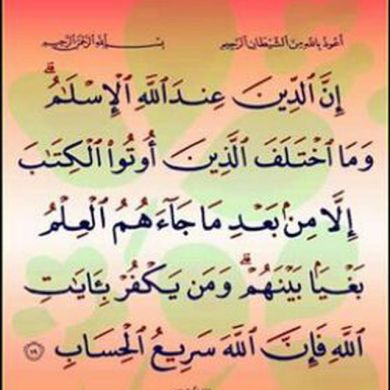 أعوذ بالله من الشيطان الرجيم بسم الله الرحمن الرحيم
إِنَّ ٱلدِّينَ عِندَ ٱللَّهِ ٱلْإِسْلَـٰمُ ۗ
وَمَا ٱخْتَلَفَ ٱلَّذِينَ أُوتُوا۟ ٱلْكِتَـٰبَ
إِلَّا مِنۢ بَعْدِ مَا جَآءَهُمُ ٱلْعِلْمُ
بَغْيًۢا بَيْنَهُمْ ۗ وَمَن يَكْفُرْ بِـَٔايَـٰتِ
ٱللَّهِ فَإِنَّ ٱللَّهَ سَرِيعُ ٱلْحِسَابِ ١٩